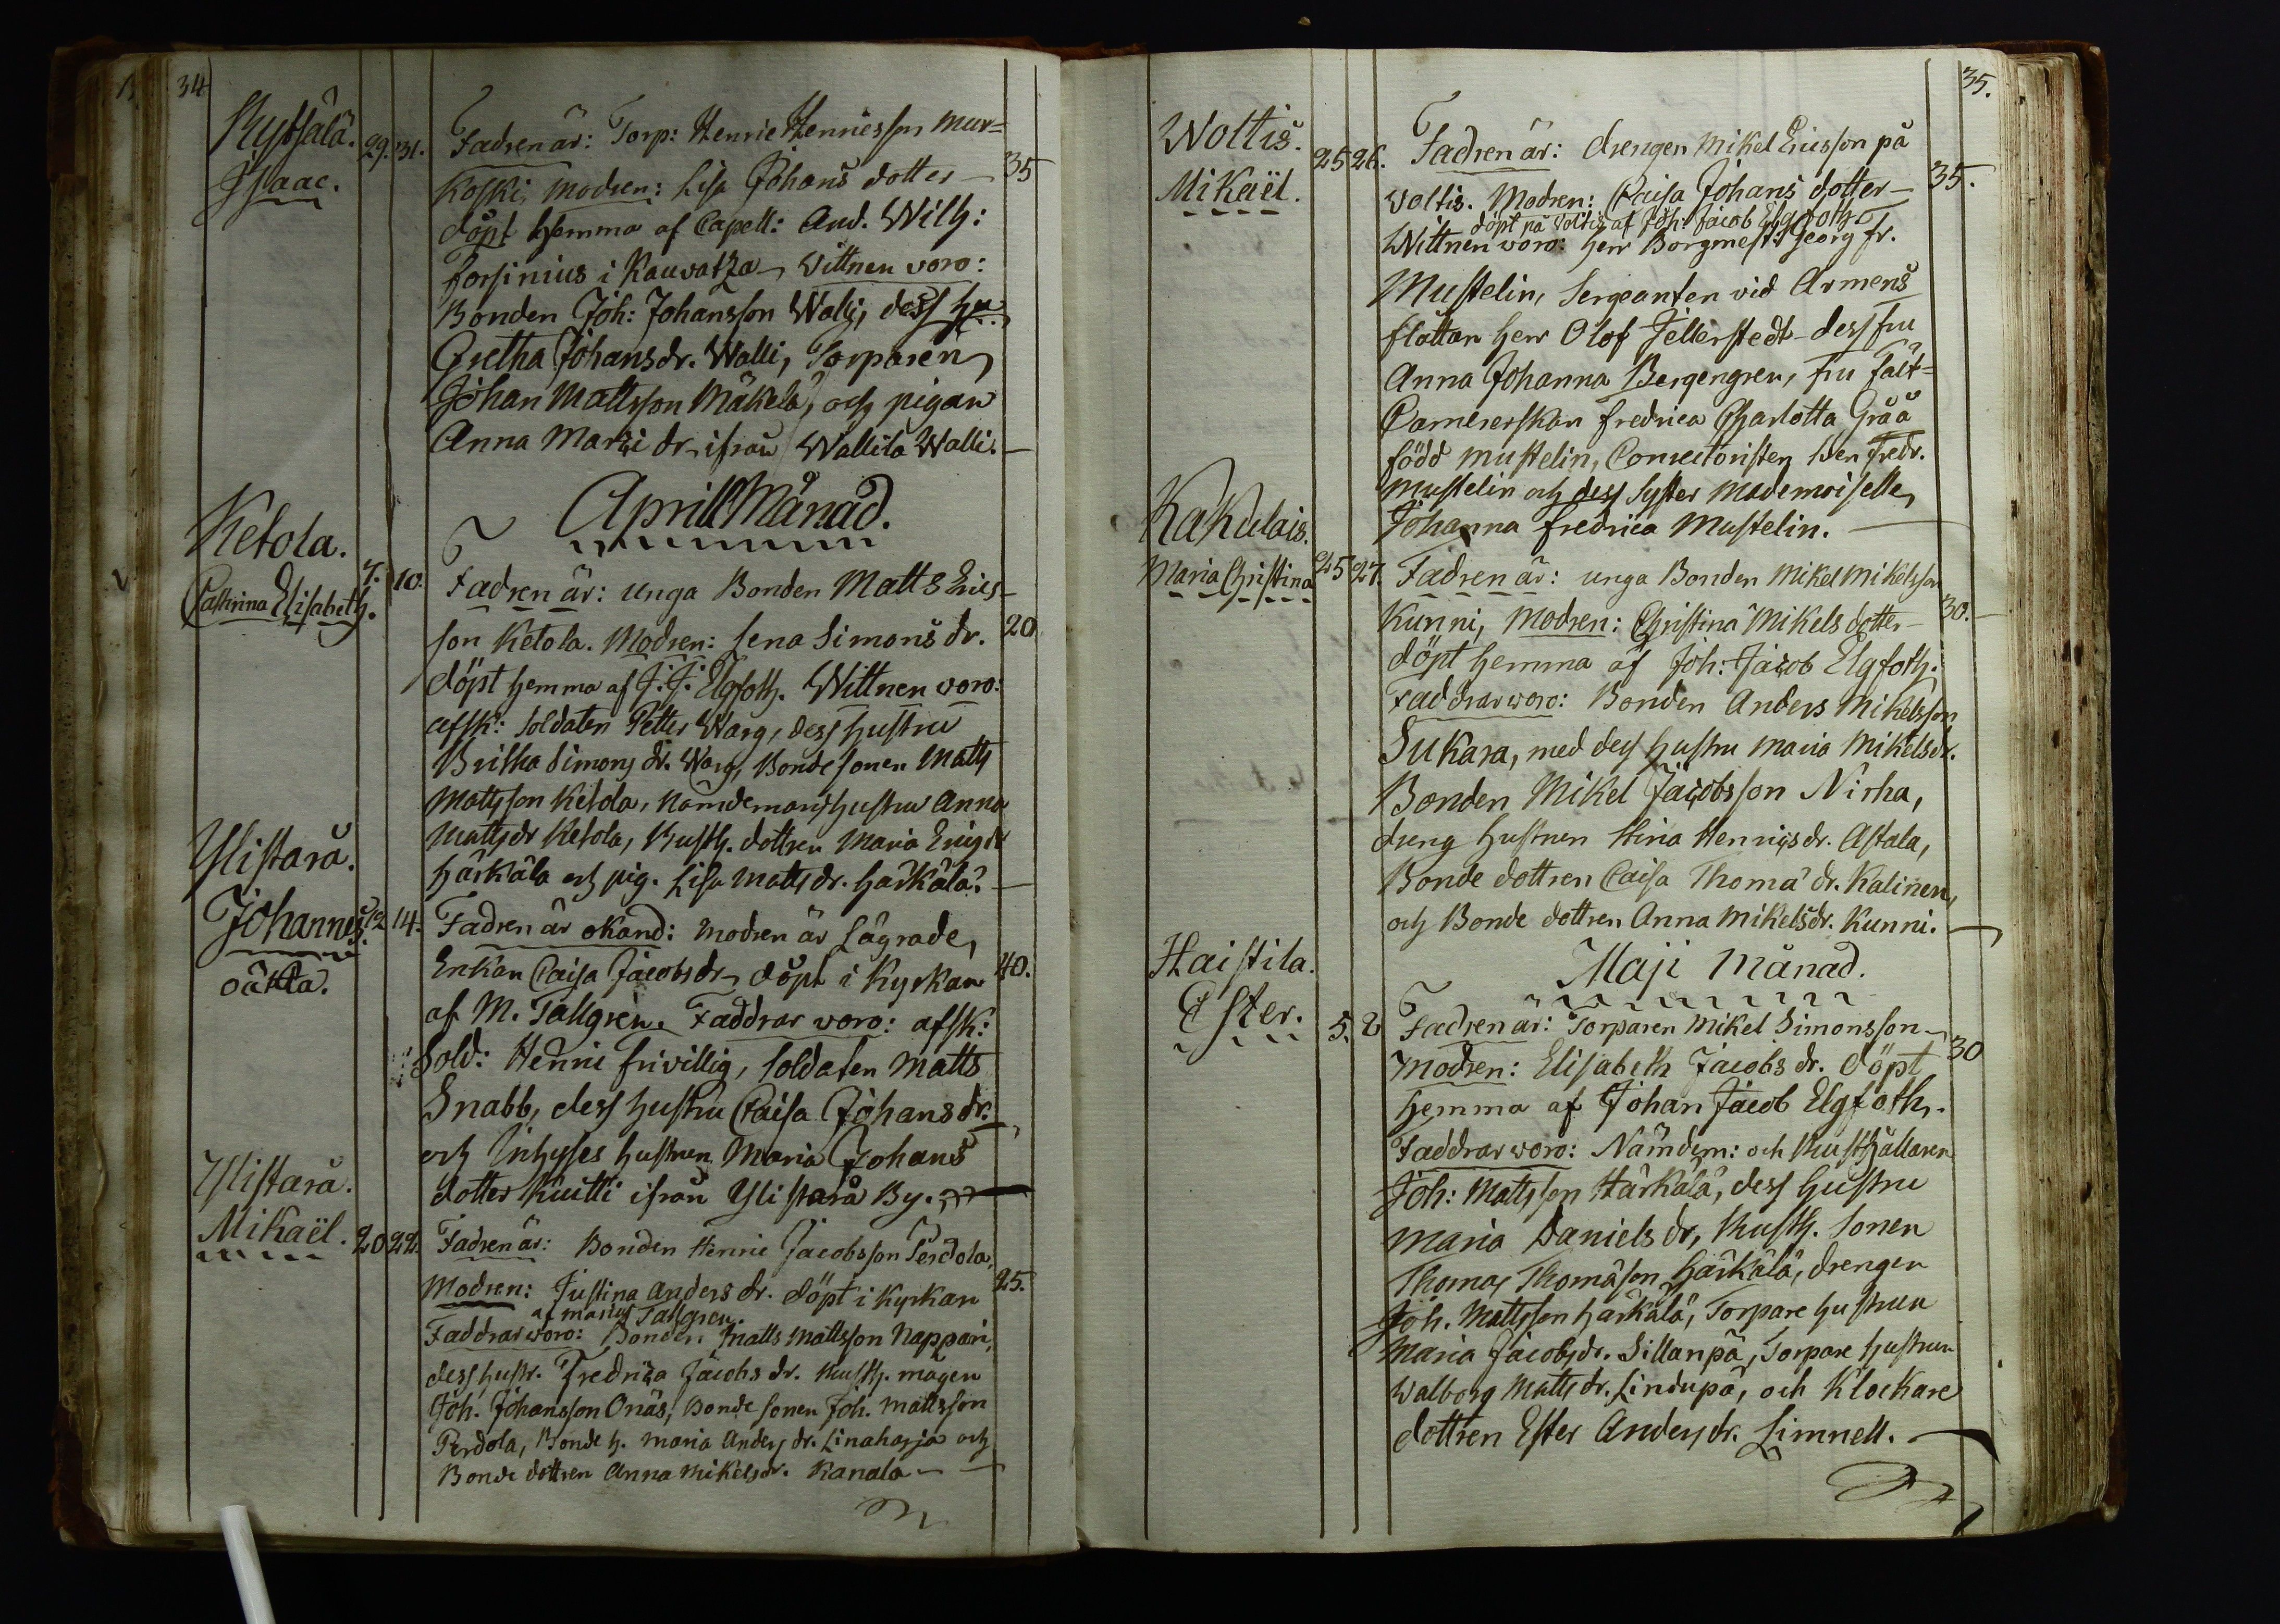 34
Kyttälä.
Isaac.
29. 31.
Fadren är: Torp: Henric Henricsson Mur=
koski, modren: Lisa Johans dotter – 35
döpt hemma af Capell: And. Wilh:
Forsinius i Kauvatza, Vittnen voro:
Bonden Joh: Johansson Walli, dess hu.
Gretha Johansdr. Walli, Torparen
Johan Mattsson Mäkelä, och pigan
Anna Matts dr. ifrån Wallila Walli.
Aprill Månad.
Ketola.
Cathrina Elisabeth.
7. 10.
Fadren är: unga Bonden Matts Erics-
son Ketola. Modren: Lena Simons dr. 20
döpt hemma af J. J. Elgfoth. Wittnen voro:
afsk: Soldaten Petter Warg, dess hustru
Britha Simons dr. Warg, Bonde sonen Matts
Mattsson Ketola, Nämdemans hustru Anna
Matts dr Ketola, Rusth. dottren Maria Erics dr
Härkälä och pig. Lisa Matts dr. Härkälä.
Ylistarå.
Johannes.
oäkta.
12 14.
Fadren är okänd: modren är Lägrade,
Enkan Caisa Jacobs dr, döpt i Kyrkan 40.
af M. Tallgren. Faddrar voro: afsk:
Sold: Henric Frivillig, Soldaten Matts
Snabb, dess hustru Caisa Johans dr.
och Inhyses hustrun Maria Johans
dotter Kuitti ifrån Ylistarå By.
Ylistarå.
Mikaël.
20 22.
Fadren är: Bonden Henric Jacobsson Perdola,
Modren: Justina Anders dr. döpt i Kyrkan 25.
af Matths Tallgren.
Faddrar voro: Bonden Matts Mattsson Nappari,
dess hustr. Fredrica Jacobs dr. Rusth. mågen
Joh. Johansson Onäs, Bonde sonen Joh. Mattsson
Perdola, Bonde h. Maria Anders dr. Linaharja och
Bonde dottren Anna Mikelsdr. Kanala
35.
Woltis.
Mikaël.
25 26.
Fadren är: drengen Mikel Ericsson på
Voltis. Modren: Caisa Johans dotter – 35.
döpt på Voltis af Joh: Jacob Elgfoth
Wittnen voro: Herr Borgmest: Georg Fr.
Mustelin, Sergeanten vid Armens
flottan Herr Olof Jellerstedt – dess fru
Anna Johanna Bergengren, Fru Fält=
Camrerskan Fredrica Charlotta Gråå
född Mustelin, Concitoristen Herr Fredr.
Mustelin och dess Syster Mademoiselle
Johanna Fredrica Mustelin.
Kakulais.
Maria Christina
25 27.
Fadren är: unga Bonden Mikel Mikelsson
Kunni, Modren: Christina Mikels dotter – 30.
döpt hemma af Joh: Jacob Elgfoth.
Faddrar woro: Bonden Anders Mikelsson
Sukara, med dess hustru Maria Mikelsdr.
Bonden Mikel Jacobsson Nirha,
dreng hustrun Stina Henricsdr. Astala,
Bonde dottren Caisa Thoma dr. Kalinen,
och Bonde dottren Anna Mikelsdr. Kunni.
Maji Månad.
Haistila.
Ester.
5. 8
Fadren är: Torparen Mikel Simonsson –
Modren: Elisabeth Jacobs dr. döpt 30
hemma af Johan Jacob Elgfoth.
Faddrar woro: Nämdem: och Rusthållaren
Joh: Mattsson Härkälä, dess hustru
Maria Daniels dr, Rusth. Sonen
Thomas Thomason Härkälä, drengen
Joh. Mattsson Härkälä, Torpare hustrun
Maria Jacobsdr. Sillanpä, Torpare hustrun
Walborg Matts dr. Lindupä, och Klockare
dottren Ester Anders dr. Limnell.